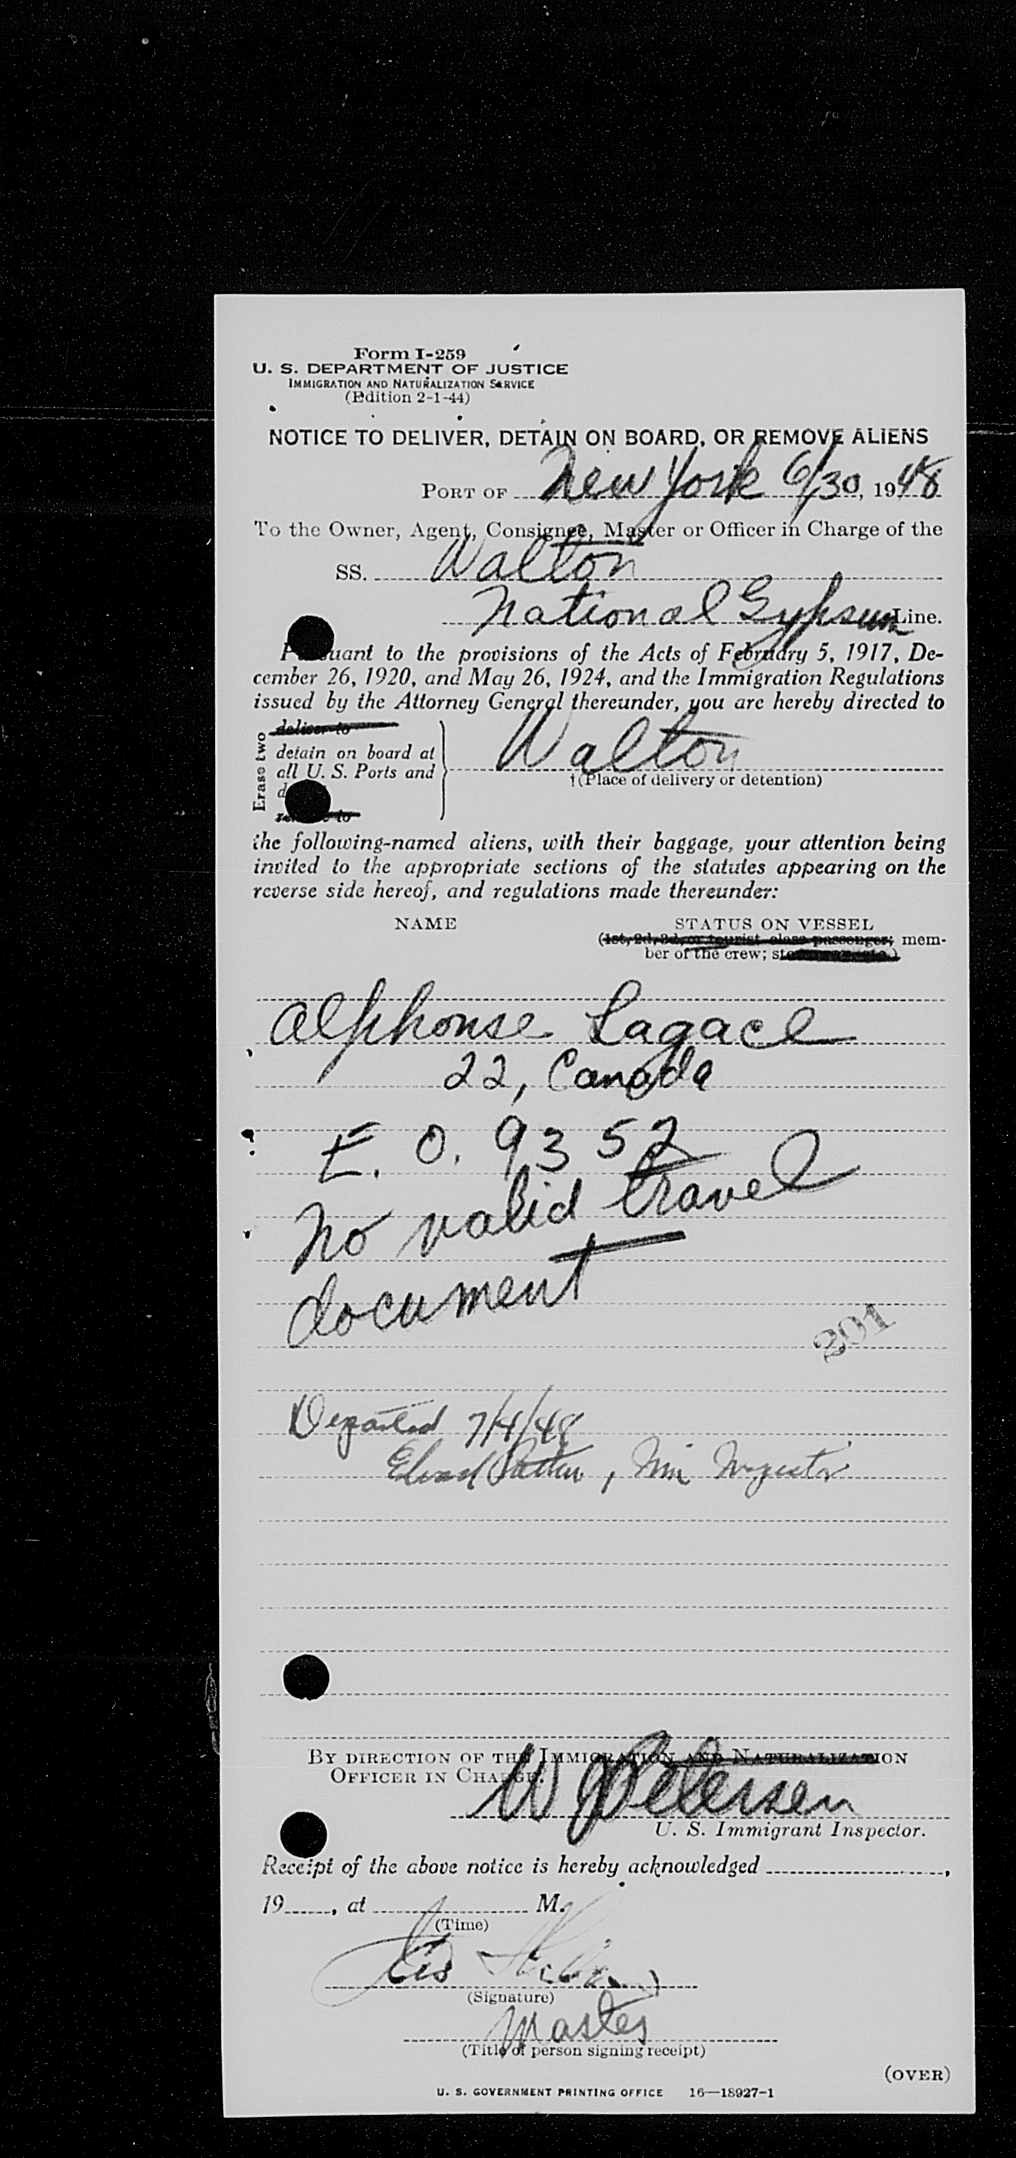 Form I-259
U. S. DEPARTMENT OF JUSTICE
IMMIGRATION AND NATURALIZATION SERVICE
(Edition 2-1-44)
NOTICE TO DELIVER, DETAIN ON BOARD, OR REMOVE ALIENS
PORT OF New York 6/30, 1948
To the Owner, Agent, Consignee, Master or Officer in Charge of the
SS. Walton
National Gypsum Line.
Pursuant to the provisions of the Acts of February 5, 1917, De-
cember 26, 1920, and May 26, 1924, and the Immigration Regulations
issued by the Attorney General thereunder, you are hereby directed to
Erase two
deliver to
detain on board at
all U. S. Ports and
Walton
†(Place of delivery or detention)
the following-named aliens, with their baggage, your attention being
invited to the appropriate sections of the statutes appearing on the
reverse side hereof, and regulations made thereunder:
NAME STATUS ON VESSEL
(1st, 2d, 3d, or tourist class passenger; mem-
ber of the crew;
Alphonse Lagace
22, Canada
E. O. 9352
No valid travel
document
201
Departed 7/4/48
Inspector
BY DIRECTION OF THE IMMIGRATION AND NATURALIZATION
OFFICER IN CHARGE.
W Petersen
U. S. Immigrant Inspector.
Receipt of the above notice is hereby acknowledged
19 , at M.
(Time)
(Signature)
Master
(Title of person signing receipt)
(OVER)
U. S. GOVERNMENT PRINTING OFFICE 16—18927-1